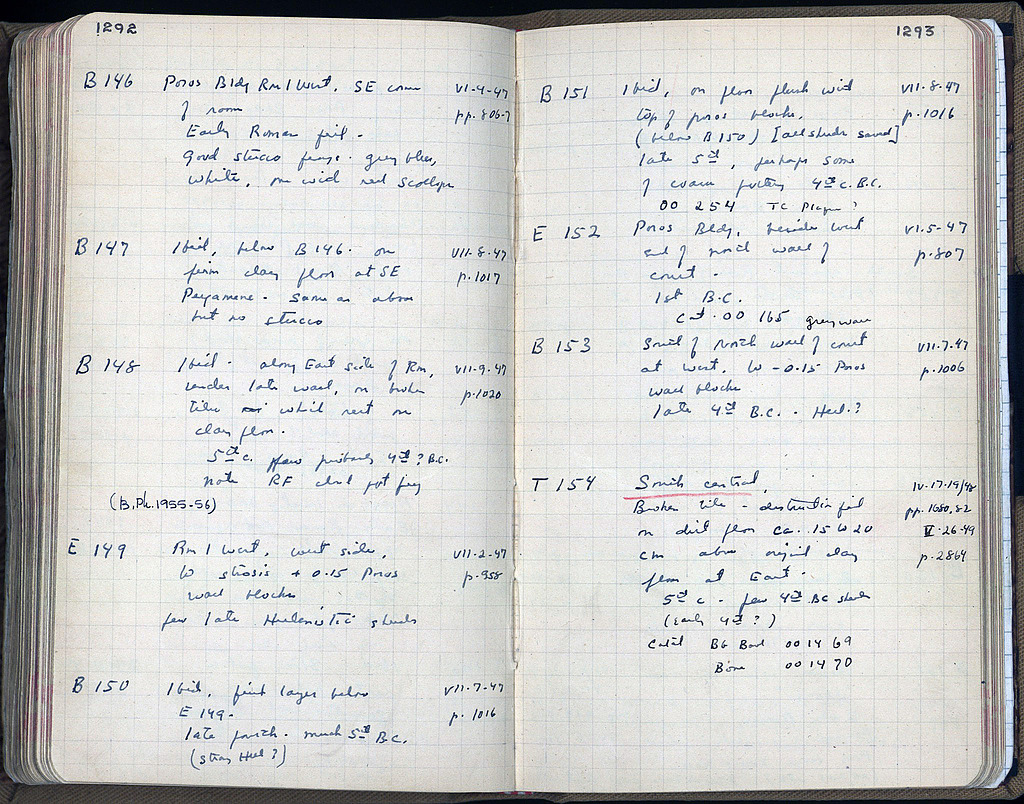 1292
B 146 Poros Bldg Rm 1 West, SE corner VI-4-47
of room pp. 806-7
Early Roman fill.
Good stucco frags. grey blue,
white, one wid red scallops
B 147 Ibid, below B 146. on VII-8-47
firm clay floor at SE p.1017
Pergamene. Same as above
but no stucco
B 148 Ibid. along East side of Rm, VII-9-47
under late wall, on broken p.1020
tile which rest on
clay floor.
5th c. few probably 4th? B.C.
note RF
(B, Ph. 1955-56)
E 149 Rm 1 West, west side, VII-2-47
to strosis + 0.15 Poros p.958
wall blocks
few late Hellenistic sherds
B 150 Ibid, first layer below VII-7-47
E 149. p. 1016
late fourth. much 5th B.C.
(stray Hell?)
1293
B 151 Ibid, on floor flush with VII-8-47
top of poros blocks. p.1016
(below B 150) [all sherds saved]
late 5th, perhaps some
of coarse pottery 4th c. B.C.
00 254 TC Plaque?
E 152 Poros Bldg, beside west VI.5-47
end of north wall of p.807
court.
1st B.C.
cat. 00 165 grey ware
B 153 South of North wall of court VII.7.47
at west, to -0.15 Poros p.1006
wall blocks
late 4th B.C. - Hell.?
T 154 South central, IV-17-19/48
Broken tile - destruction fill pp. 1680, 82
on dirt floor ca. 15 to 20 V-26-49
cm above original clay p.2864
floor at East.
5th c - few 4th BC sherds
(early 4th?)
Catal BG Bowl 00 14 69
Bone 00 14 70